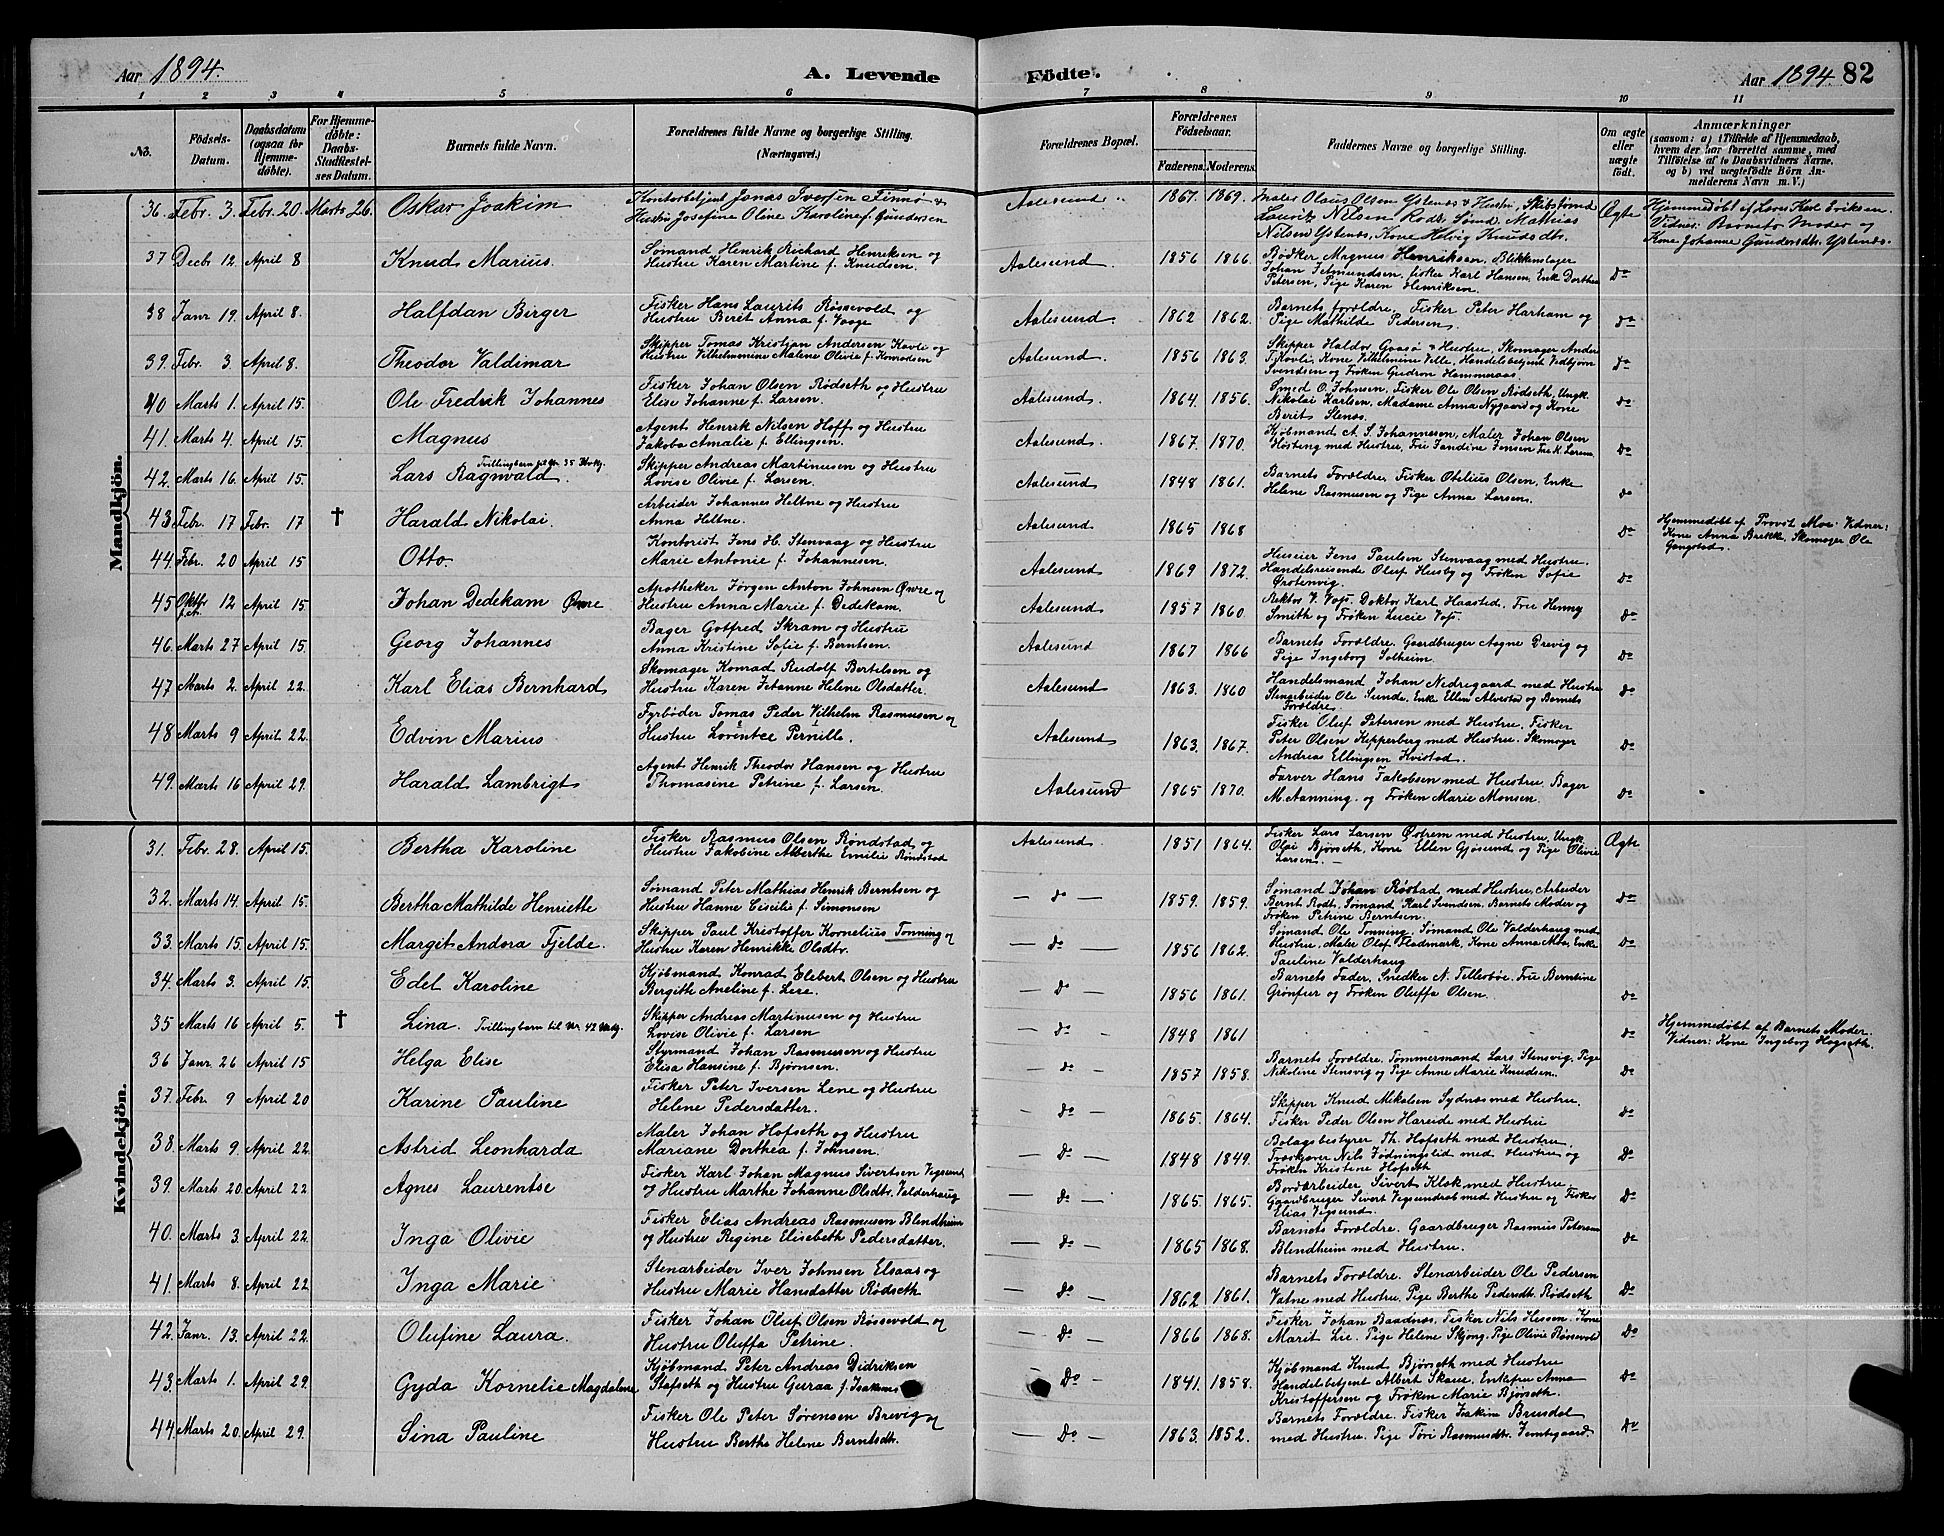 Aar 1894. A. Levende Fødte. Aar 1894 82
1 2 3 4 5 6 7 8 9 10 11
No. Fødsels-Datum. Daabsdatum (ogsaa for Hjemme-døbte). For Hjemme-døbte: Daabs-Stadfæstel-ses Datum. Barnets fulde Navn. Forældrenes fulde Navne og borgerlige Stilling. (Næringsvei.) Forældrenes Bopæl. Forældrenes Fødselsaar. Faderens. Moderens. Faddernes Navne og borgerlige Stilling. Om ægte eller uægte født. Anmærkninger (saasom: a) i Tilfælde af Hjemmedaab, hvem der har forrettet samme, med Tilføielse af to Daabsvidners Navne, og b) ved uægtefødte Børn An-melderens Navn m. V.)
Mandkjön.
36. Febr. 3. Febr. 20. Marts 26. Oskar Joakim Kontorbetjent Jonas Iversen Finnø &
Hustru Josefine Oline Karoline f. Gundersen
Aalesund 1867. 1869. Maler Olaus Olsen Ystenes & Hustru, Skibstømd
Lauritz Nilsen Rode Sømd Mathias
Nilsen Ystenes, Kone Helvig Knudsdtr.
Ægte Hjemmedøbt af Lars Karl Eriksen.
Vidner: Barnets Moder og
Kone Johanne Gundersdtr. Ystenes.
37 Decb. 12. April 8 Knud Marius. Sømand Henrik Richard Henriksen og
Hustru Karen Martine f. Knudsen.
Aalesund. 1856 1866. Bødker Magnus Henriksen, Blikkenslager
Johan Jetmundsen, fisker Karl Hansen, Enk Dorthea
Petersen, Pige Karen Henriksen. Do
38 Janr 19. April 8. Halfdan Birger Fisker Hans Laurits Røssevold og
Hustru Beret Anna f. Vaage
Aalesund. 1862 1862. Barnets forældre, Fisker Peter Harham og
Pige Mathilde Pedersen. do
39. Febr. 3. April 8. Theodor Valdimar Skipper Tomas Kristian Andersen Kavli &
Hustru Vilhelmmine Malene Olivie f. Komodsen
Aalesund. 1856 1863. Skipper Haldor Gaasø & Hustru, Skomager Ander
T. Hovli, Kone Vilhelmine Ville, Handelsbetjent Vedbjørn
Svendsen og Frøken Gudrun Hammeraas. do
40 Marts 1. April 15. Ole Fredrik Johannes Fisker Johan Olsen Rødseth og Hustru
Elise Johanne f. Larsen.
Aalesund. 1864. 1856. Smed O. Johnsen, Fisker Ole Olsen Rødseth, Ungk.
Nikolai Karlsen, Madame Anna Nygaard og Kone
Berit Stenæs. do
41. Marts 4. April 15. Magnus Agent Henrik Nilsen Hoff og Hustru
Jakoba Amalie f. Ellingsen.
Aalesund. 1867. 1870. Kjøbmand A. S. Johannesen, Maler Johan Olsen
Høsteng med Hustru, Fru Jandine Jensen Fr. K. Larsen. Do
42. Marts 16. April 15. Lars Ragnvald. Tvillingbarn til Nr 35 Kvkj. Skipper Andreas Martinusen og Hustru
Lovise Olivie f. Larsen.
Aalesund 1848 1861. Barnets Forældre, Fisker Otelius Olsen, Enke
Helene Rasmusen og Pige Anna Larsen. do
43 Febr. 17 Febr. 17 † Harald Nikolai. Arbeider Johannes Heltne og Hustru
Anna Heltne.
Aalesund 1865 1868 Do Hjemmedøbt af Provst Moe. Vidner:
Kone Anna Brekk, Skomager Ole
Gangstad.
44. Febr. 20 April 15 Otto. Kontorist Jens H. Stenvaag og Hustru
Marie Antonie f. Johannesen.
Aalesund 1869 1872. Huseier Jens Paulsen Stenvaag med Hustru.
Handelsreisende Oluf Husby og Frøken Sofie
Ørstenvig. Do
45 Oktbr f. A. 12 April 15. Johan Dedekam Øwre Apotheker Jørgen Anton Johnsen Øwre og
Hustru Anna Marie f. Dedekam.
Aalesund 1857 1860. Rektor V. Voss. Doktor Karl Haasted. Fru Henny
Smith og Frøken Lucie Voss. Do
46. Marts 27 April 15. Georg Johannes Bager Gotfred Skram og Hustru
Anna Kristine Sofie f. Berntsen.
Aalesund 1867 1866 Barnets Forældre. Gaardbruger Aagne Drevig og
Pige Ingeborg Solheim. Do
47 Marts 2. April 22. Karl Elias Bernhard Skomager Konrad Rudolf Bertelsen og
Hustru Karen Jetanne Helene Olsdatter.
Aalesund 1863. 1860 Handelsmand Johan Nedregaard med Hustru
Stenarbeider Ole Sunde, Enk. Ellen Alvestad og Barnets
Forældre. Do
48 Marts 9 April 22. Edvin Marius Fyrbøder Tomas Peder Vilhelm Rasmusen og
Hustru Lorentce Pernille.
Aalesund 1863. 1867. Fisker Oluf Petersen med Hustru. Fisker
Peter Olsen Kipperberg med Hustru. Skomager
Andreas Ellingsen Kvistad. Do
49. Marts 16 April 29. Harald Lambrigt Agent Henrik Theodor Hansen og Hustru
Thomasine Petrine f. Larsen.
Aalesund 1865 1870. Farver Hans Jakobsen med Hustru. Bager
M. Aanning. og Frøken Marie Monsen. Do
Kvindekjön.
31. Febr. 28. April 15. Bertha Karoline Fisker Rasmus Olsen Røndstad og
Hustru Jakobine Alberthe Emilie Røndstad
Aalesund. 1851 1864. Fisker Lars Larsen Østrem med Hustru. Ungk.
Olai Bjørseth, Kone Ellen Gjøsund og Pige Olivie
Larsen. — Ægte
32. Marts 14. April 15. Bertha Mathilde Henriette Sømand Peter Mathias Henrik Berntsen og
Hustru Hanne Cecilie f. Simonsen
— do — 1859. 1859. Sømand Johan Røstad med Hustru, Arbeider
Bernt Rødt. Sømand Karl Svendsen. Barnets Moder og
Frøken Petrine Berntsen. Do
33. Marts 15. April 15. Margit Andora Fjelde. Skipper Paul Kristoffer Kornelius Tonning og
Hustru Karen Henrikke Olsdtr.
— do — 1856 1862. Sømand Ole Tonning. Sømand Ole Valderhaug med
Hustru, Maler Olaf Fladmark, Kone Anna Moe, Enke
Pauline Valderhaug Do
34. Marts 3. April 15. Edel Karoline Kjøbmand Konrad Elebert Olsen og Hustru
Bergitte Aneline f. Lere.
— do — 1856 1861. Barnets Fader, Snedker N. Tellesbøe. Fru Berntine
Grønfur og Frøken Oluffa Olsen. Do
35 Marts 16 April 5. † Lina. Tvillingbarn til Nr 42 Mdkj. Skipper Andreas Martinusen og Hustru
Lovise Olivie f. Larsen
— do — 1848 1861 Do Hjemmedøbt af Barnets Moder.
Vidner: Kone Ingeborg Hogseth.
36 Janr. 26 April 15 Helga Elise Styrmand Johan Rasmusen og Hustru
Elisa Hansine f. Bjørnsen.
— do — 1857 1858. Barnets Forældre. Tømmermand Lars Stensvig, Pige
Nikoline Stensvig og Pige Anne Marie Knudsen. Do
37. Febr. 9 April 20 Karine Pauline Fisker Peter Iversen Lene og Hustru
Helene Pedersdatter.
— do — 1865. 1864. Skipper Knud Mikalsen Sydnes med Hustru.
Fisker Peder Olsen Hareide med Hustru Do
38. Marts 9. April 22. Astrid Leonharda Maler Johan Hofseth og Hustru
Mariane Dorthea f. Johnsen.
— do — 1848 1849. Bolagsbestyrer Th. Hofseth med Hustru.
Træskjærer Nils Fødningslid med Hustru og
Frøken Kristine Hofseth Do
39. Marts 20. April 22 Agnes Laurentse Fisker Karl Johan Magnus Sivertsen Vegsund
og Hustru Marthe Johanne Olsdtr. Valderhaug
— do — 1865. 1865. Bordarbeider Sivert Klok med Hustru.
Gaardbruger Sivert Vegsundsab med Hustru og Fisker
Elias Vegsund. Do
40. Marts 3 April 22. Inga Olivie Fisker Elias Andreas Rasmusen Blindheim
og Hustru Regine Elisebeth Pedersdatter.
— do — 1865 1868. Barnets Forældre. Gaardbruger Rasmus Petersen
Blindheim med Hustru. Do
41. Marts 8. April 22 Inga Marie Stenarbeider Iver Johnsen Elsaas og
Hustru Marie Hansdatter Rødseth
— do — 1862 1861. Barnets Forældre. Stenarbeider Ole Pedersen
Vatne med Hustru, Pige Berthe Pedersdt. Rødseth Do
42. Janr. 13. April 22. Olufine Laura. Fisker Johan Oluf Olsen Røssevold og
Hustru Oluffa Petrine.
— do — 1866 1868. Fisker Johan Baadnæs. Fisker Nils Hessen, Kone
Marit Lie. Pige Helene Skjong, Pige Olivie Rønsevold Do
43. Marts 1. April 29. Gyda Kornelie Magdalene Kjøbmand Peter Andreas Didriksen
Stafseth og Hustru Guraa f. Joakims
Do — 1841. 1858. Kjøbmand Knud Bjørseth med Hustru
Handelsbetjent Albert Skaue, Enkefru Anna
Kristoffersen og Frøken Marie Bjørseth. Do
44. Marts 20. April 29. Sina Pauline Fisker Ole Peter Sørensen Brevig og
Hustru Berthe Helene Berntsdtr.
— Do — 1863. 1852. Barnets Forældre. Fisker Joakim Brusdal
med Hustru. Pige Tøri Rasmusdtr. Jemtegaard. Do